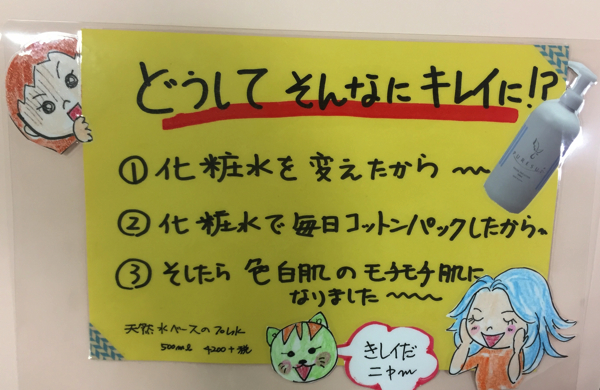 どうして そんなに キレイに!?
① 化粧水を変えたから〜〜
② 化粧水で毎日コットンパックしたから〜
③ そしたら 色白肌のモチモチ肌に
なりました〜〜〜
天然水ベースの
500ml 4200+税
きしイだ
ニャm